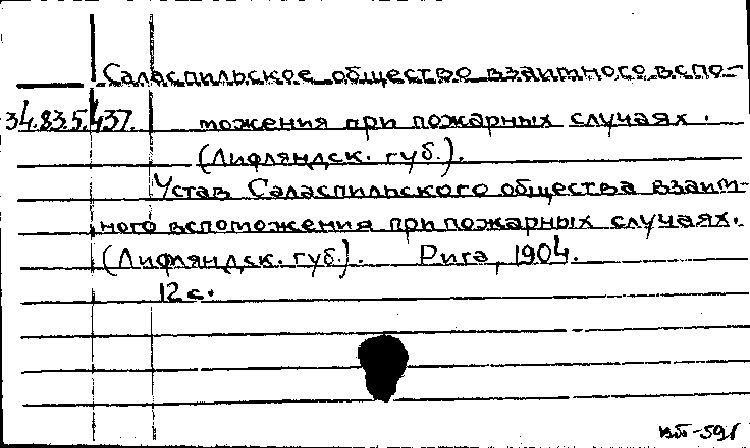 Саласпильское общество взаимного вспо-
34.83.5.437. можения при пожарных случаях.
(Лифляндск. губ.).
Устав Саласпильского общества взаим-
ного вспоможения при пожарных случаях.
(Лифляндск. губ.). Рига, 1904.
12 с.